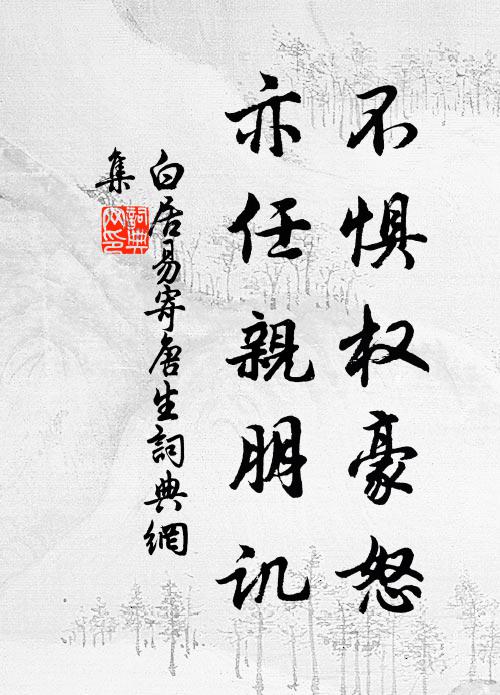 不惧权豪怒
亦任親朋讥
白居易寄唐生詞典網
集
詞典網印